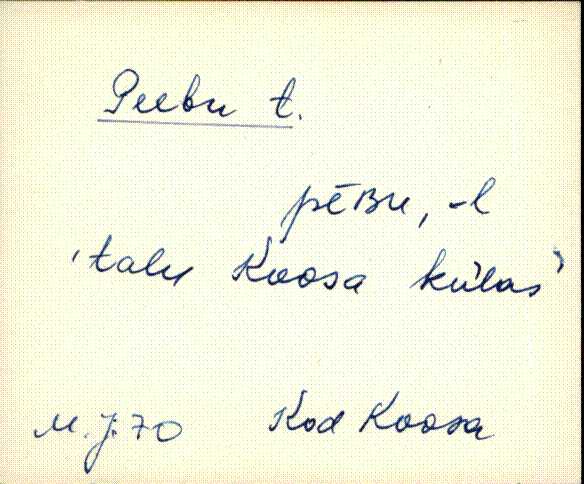 Peebu t.
pēBu, -l
'talu Koosa külas'
M. J. 70 Kod Koosa